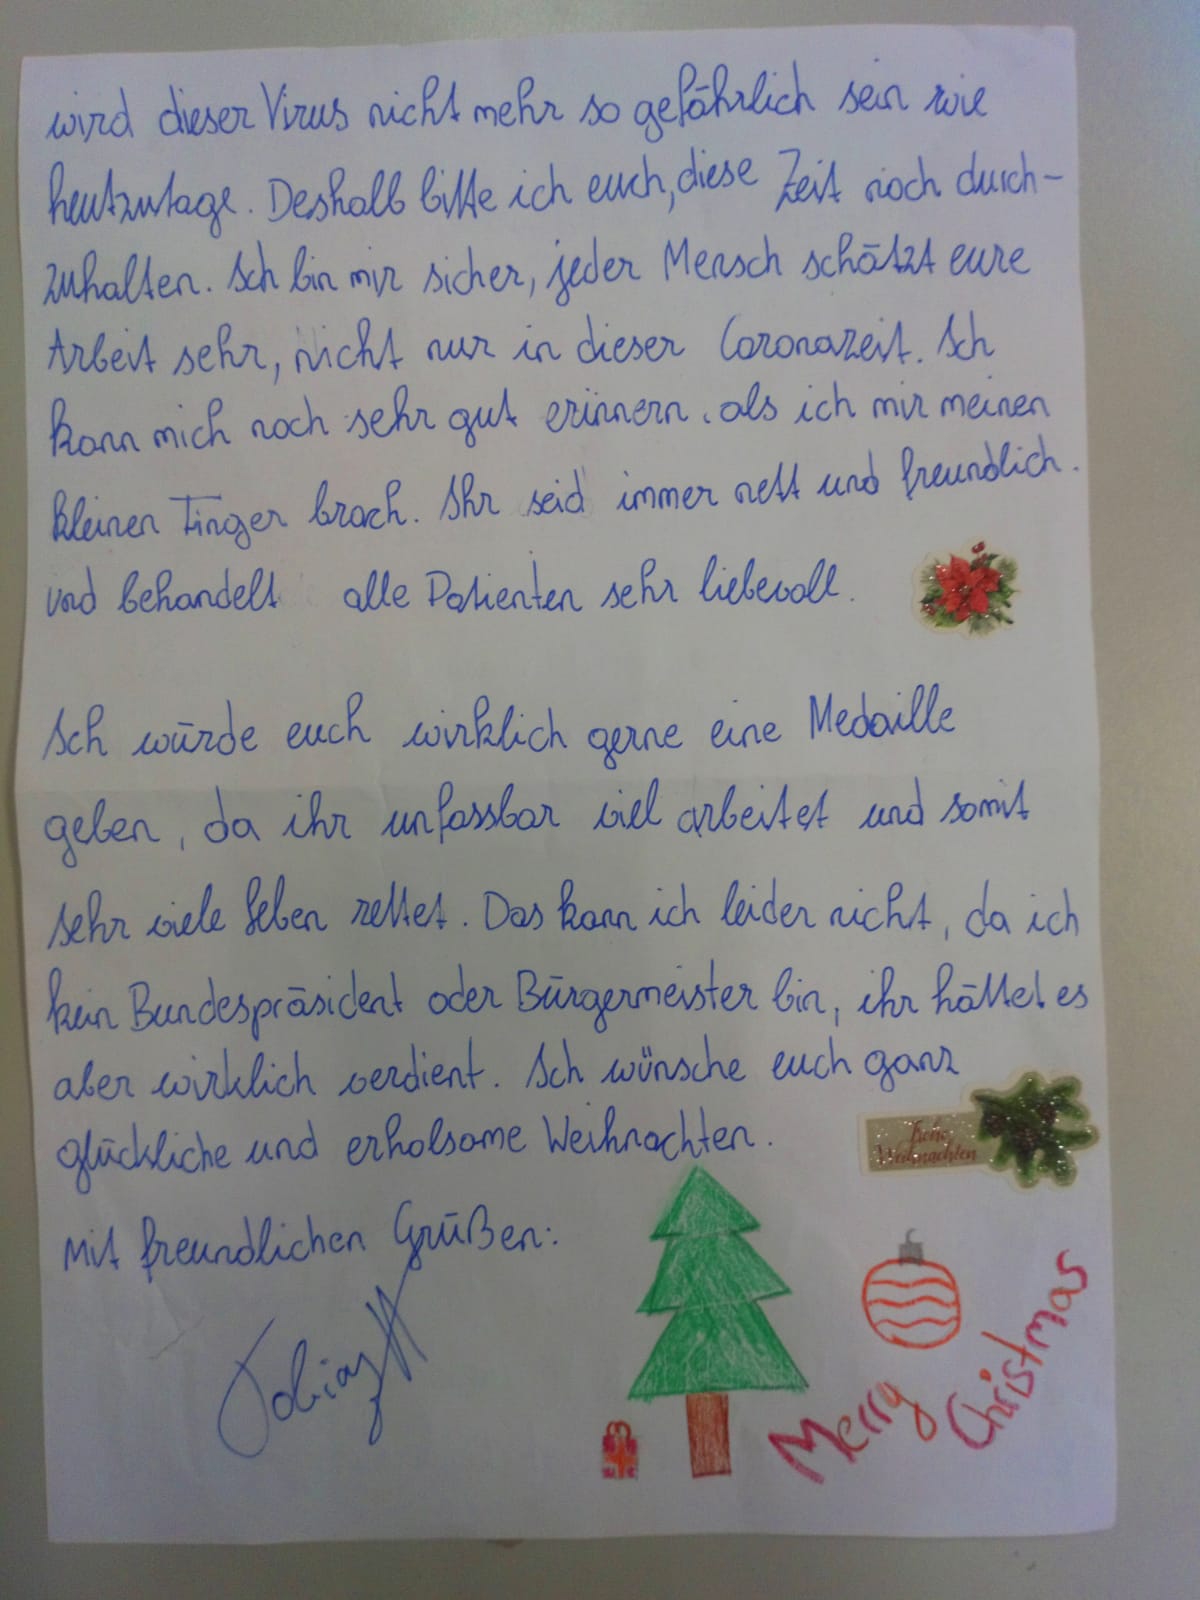 wird dieser Virus nicht mehr so gefährlich sein wie
heutzutage. Deshalb bitte ich euch, diese Zeit noch durch-
zuhalten. Ich bin mir sicher, jeder Mensch schätzt eure
Arbeit sehr, nicht nur in dieser Coronazeit. Ich
kann mich noch sehr gut erinnern, als ich mir meinen
kleinen Finger brach. Ihr seid immer nett und freundlich.
und behandelt alle Patienten sehr liebevoll.
Ich würde euch wirklich gerne eine Medaille
geben, da ihr unfassbar viel arbeitet und somit
sehr viele Leben rettet. Das kann ich leider nicht, da ich
kein Bundespräsident oder Bürgermeister bin, ihr hättet es
aber wirklich verdient. Ich wünsche euch ganz
glückliche und erholsame Weihnachten.
Frohe
Weihnachten
Mit freundlichen Grüßen:
Tobias H
Merry Christmas